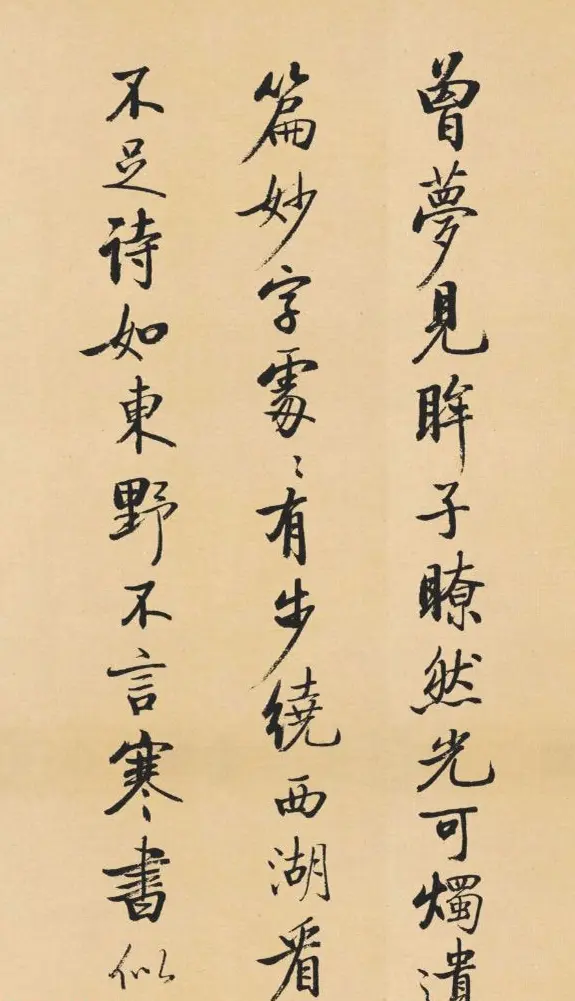 曾夢見眸子瞭然光可燭遺
篇妙字處〻有步繞西湖看
不足詩如東野不言寒書似